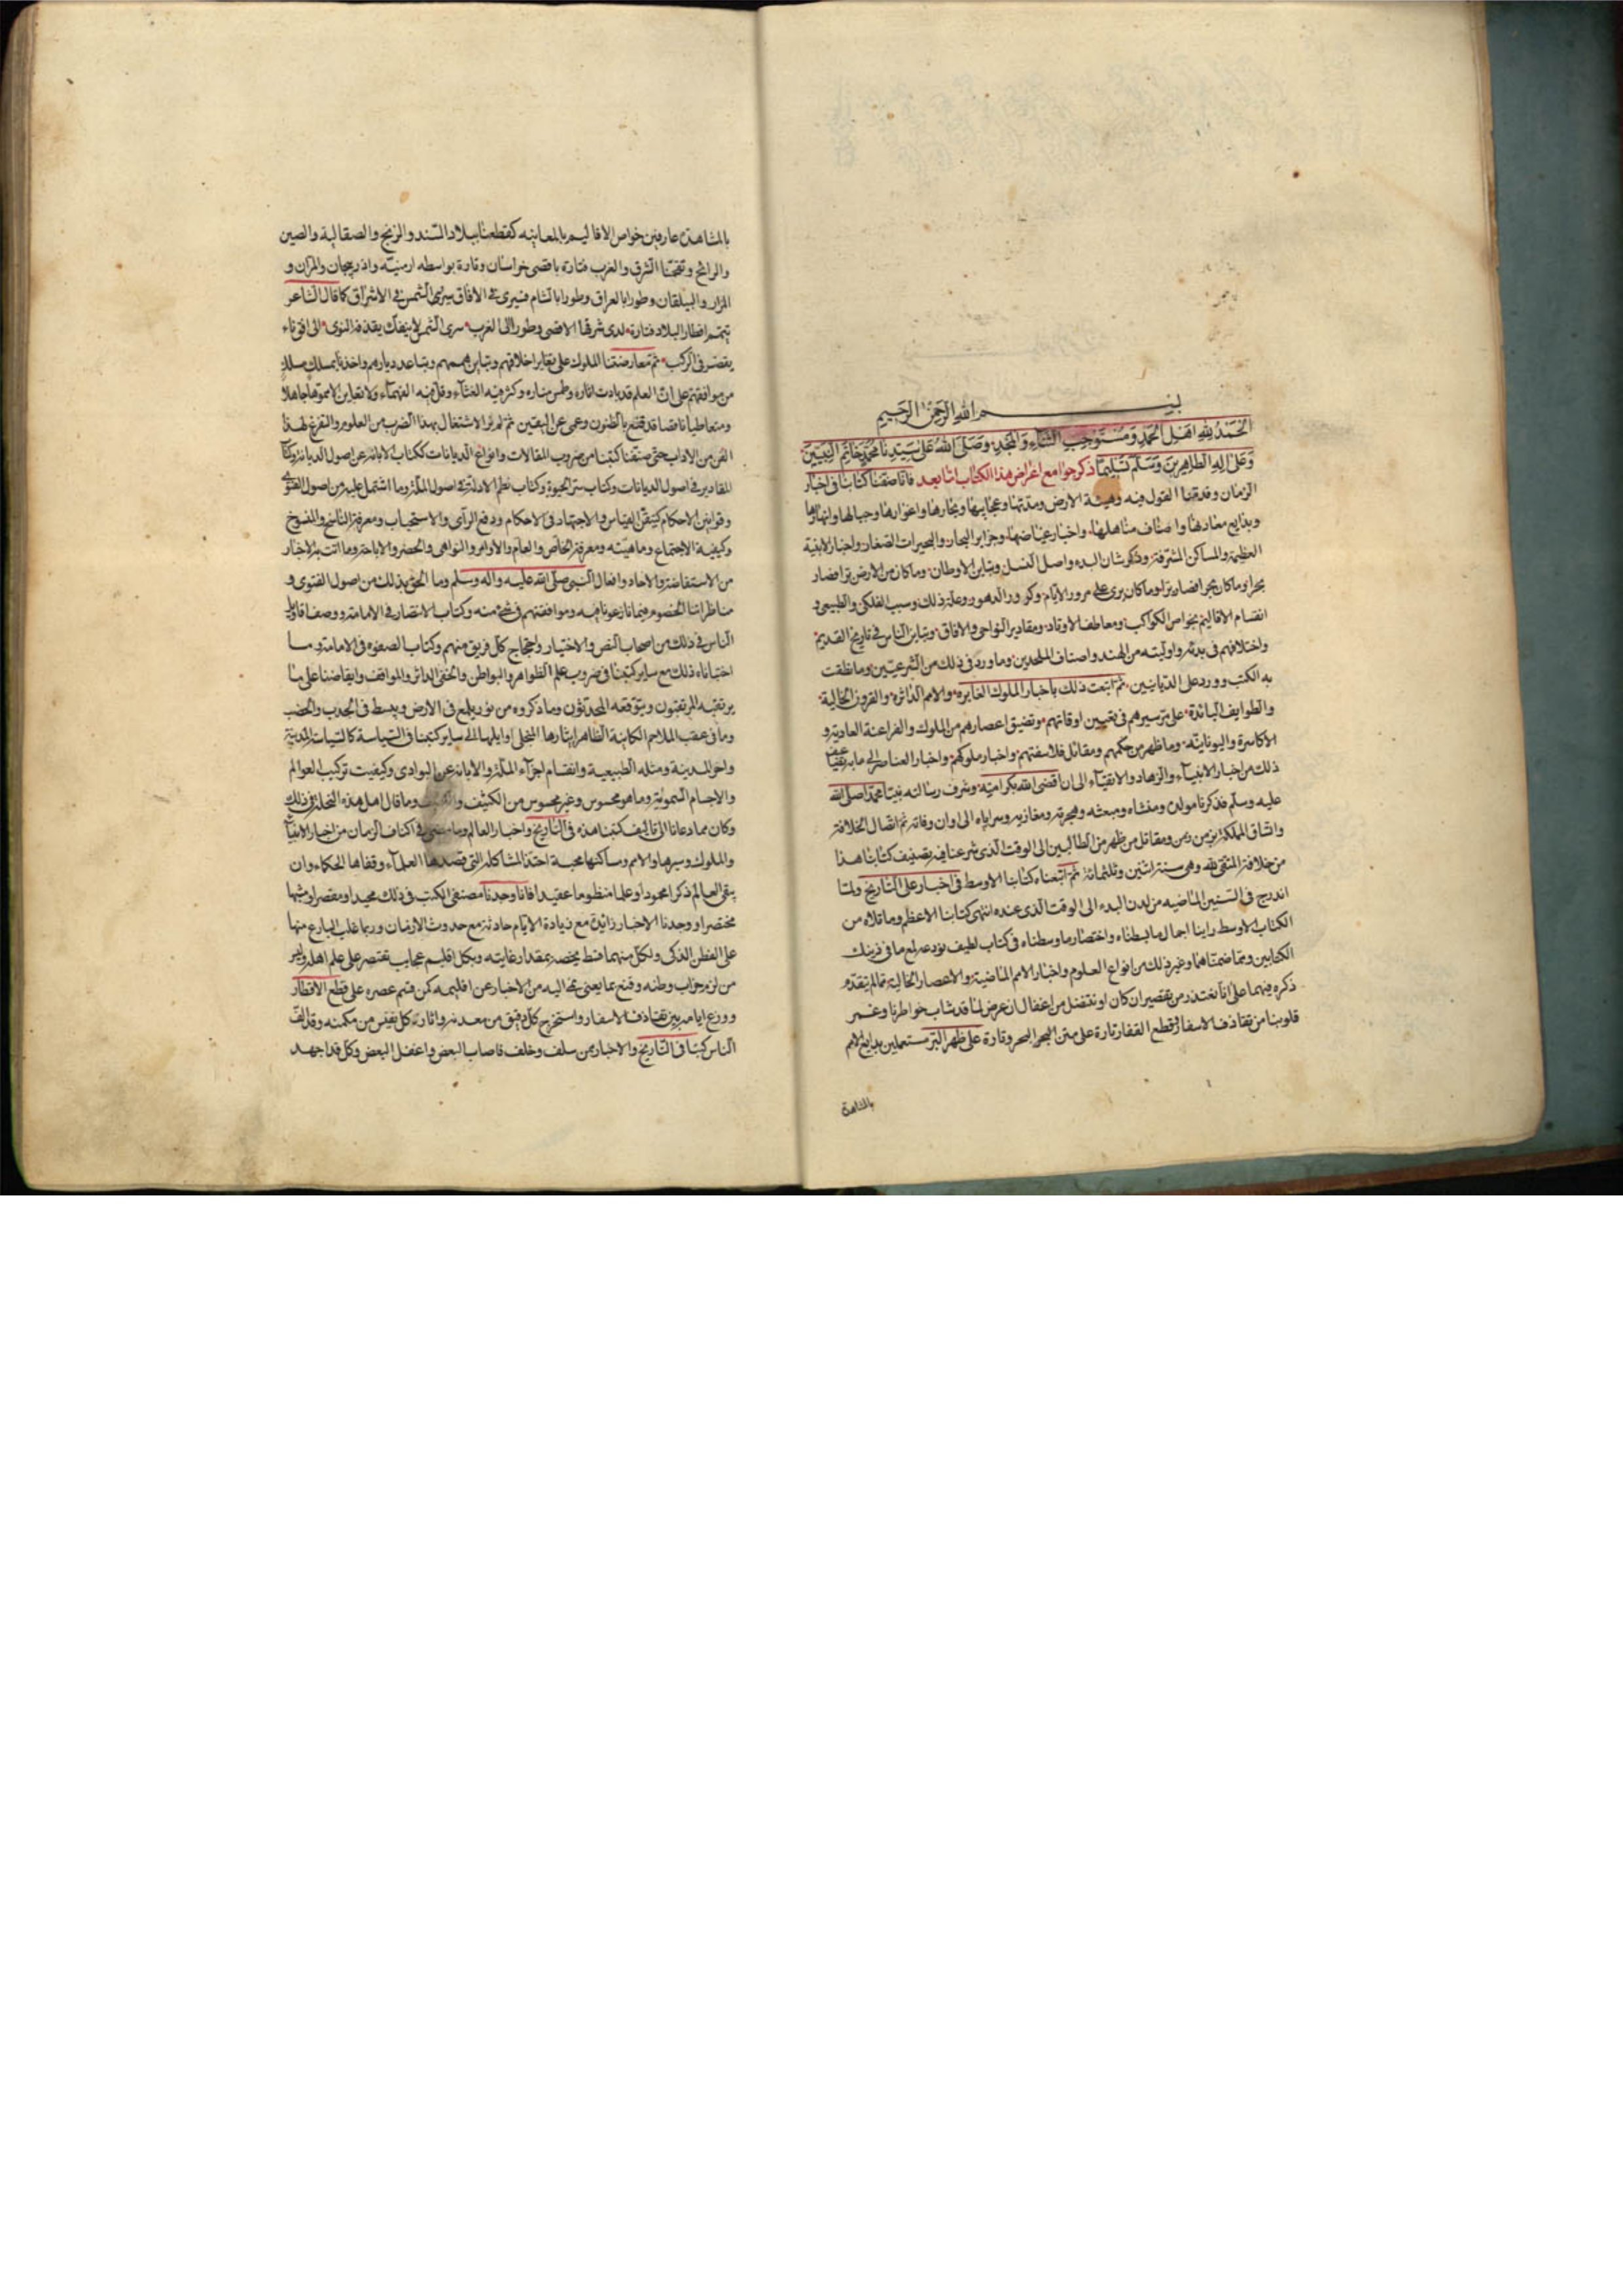 بسم الله الرحمن الرحيم
الحمد لله اهل الحمد ومستوجب الثناء والمجد وصلى الله على سيدنا محمد خاتم النبيين
وعلى اله الطاهرين وسلم تسليما ذكر جوامع اغراض هذا الكتاب اما بعد فانا صنفنا كتابنا في اخبار
الزمان وقدمنا القول فيه وهيئة الارض ومدنها وعجايبها وبحارها واغوارها وجبالها وانهارها
وبدايع معادنها واصناف مناهلها واخبار غياضها وجزاير البحار والبحيرات الصغار واخبار الابنية
العظيمة والمساكن المشرفة وذكر شان البدء واصل النسل وتباين الاوطان وما كان من الارض بر افصار
بحرا وما كان بحرا فصار برا وما كان يرى على مرور الايام وكرور الدهور وعلة ذلك وسبب الفلكي والطبيعي و
انقسام الاقاليم بخواص الكواكب ومعاطف الاوتاد ومقادير النواحي والافاق وتباين الناس في تاريخ القديم
واختلافهم في بدئه واوليته من الهند واصناف الملحدين وما ورد في ذلك من الشرعيين وما نطقت
به الكتب وورد على الديانيين ثم اتبعت ذلك باخبار الملوك الغابره والامم الداثره والقرون الخالية
والطوايف البائدة على مر سيرهم في تعيين اوقاتهم وتضيق اعصارهم من الملوك والفراعنة العادية و
الاكاسرة واليونانية وما ظهر من حكمهم ومقائل فلاسفتهم واخبار ملوكهم واخبار العناصر الى ما به
ذلك من اخبار الانبياء والزهاد والاتقياء الى ان افضى الله بكرامته وشرف رسالته نبينا محمدا صلى الله
عليه وسلم فذكرنا مولده ومنشاه ومبعثه وهجرته ومغازيه وسراياه الى اوان وفاته ثم اتصال الخلافة
واتساق المملكة بزمن زمن ومقاتل من ظهر من الطالبين الى الوقت الذي شرعنا فيه بتصنيف كتابنا هذا
من خلافة المتقي لله وهي سنة اثنين وثلثمائة ثم اتبعناه كتابنا الاوسط في اخبار على التاريخ ولما
اندرج في السنين الماضيه من لدن البدء الى الوقت الذي عنده انتهى كتابنا الاعظم وما تلاه من
الكتاب الاوسط راينا اجمال ما بسطناه واختصار ما وسطناه في كتاب لطيف نودعه لمع ما في ذينك
الكتابين ومما ضمناهما وغير ذلك من انواع العلوم واخبار الامم الماضية والاعصار الخالية مما لم يتقدم
ذكره فيهما على انا نعتذر من تقصير ان كان او نتنصل من اغفال ان عرض لما قد شاب خواطرنا وغمر
قلوبنا من تقاذف الاسفار وقطع القفار تارة على متن البحر وتارة على ظهر البر مستعملين بدايع الامم
بالمشاهدة
بالمشاهدة عارفين خواص الاقاليم بالمعاينه كقطعنا بلاد السند والزنج والصقالبة والصين
والرانج وتقحمنا الشرق والغرب فتارة باقصى خراسان وتارة بواسطه ارمنيه واذربيجان والران و
الران والبيلقان وطورا بالعراق وطورا بالشام فسيرى في الافاق سرى الشمس في الاشراق كما قال الشاعر
تيمم اقطار البلاد فتارة لدى شرقها الاقصى وطورا الى الغرب سرى الشمس لا ينفك يقذفه النوى الى افق ناء
يقصر في الركب ثم معارضتنا الملوك على تغاير اخلاقهم وتباين هممهم وتباعد ديارهم واخذنا بمسلك مسلك
من موافقتهم على ان العلم قد بادت اثاره وطمس مناره وكثر فيه الغثاء وقل فيه الفهماء ولا تعاين الا مموها جاهلا
ومتعاطيا ناقصا قد قنع بالظنون وعمي عن اليقين ثم لم نر الاشتغال بهذا الضرب من العلوم والتفرغ لهذا
الفن من الاداب حتى صنفنا كتبنا من ضروب المقالات وانواع الديانات ككتاب الابانه عن اصول الديانة وكتاب
المقادير في اصول الديانات وكتاب سر الحيوة وكتاب نظم الادلة في اصول الملة وما اشتمل عليه من اصول الفتوى
وقوانين الاحكام كتيقن القياس والاجتهاد في الاحكام ودفع الرأى والاستحباب ومعرفة الناسخ والمنسوخ
وكيفية الاجتماع وماهيته ومعرفة الخاص والعام والاوامر والنواهى والحضر والاباحة وما اتت به الاخبار
من الاستفاضة والاحاد وافعال النبي صلى الله عليه واله وسلم وما الحق بذلك من اصول الفتوى و
مناظراتنا الخصوم فيما نازعونا فيه وموافقتهم في شيء منه وكتاب الانتصار في الامامة ووصف اقاويل
الناس في ذلك من اصحاب النص والاختيار واحتجاج كل فريق منهم وكتاب الصفوه في الامامة وما
احتباناه ذلك مع ساير كتبنا في ضروب علم الظواهر والبواطن والخفى الداثر والمواقف وايقاضنا على ما
يرتقبه المرتقبون ويتوقعه المحدثون وما ذكروه من نور يلمع في الارض ويبسط في الجدب والخصب
وما في عقب الملاحم الكاينة الظاهر انباؤها المنجلى اوايلها الى ساير كتبنا في السياسة كالسياسة المدنية
واجزاء المدينة ومثله الطبيعية وانقسام اجزاء الملة والابانة عن البوادى وكيفيت تركيب العوالم
والاجسام السموية وما هو محسوس وغير محسوس من الكثيف وما قال اهل هذه النحلة في ذلك
وكان مما دعانا الى تاليف كتبنا هذه في التاريخ واخبار العالم وما مضى في اكناف الزمان من اخبار الانبياء
والملوك وسيرها والامم ومساكنها محبة احتذا المشاكله التي قصدها العلماء وقفاها الحكماء وان
يبقى العالم ذكرا محمودا وعلما منظوما عقيدا فانا وجدنا مصنفى الكتب في ذلك مجيدا ومقصرا ومسهبا
مختصرا ووجدنا الاخبار زائدة مع زيادة الايام حادثة مع حدوث الازمان وربما غاب البارع منها
على الفطن الذكى ولكل منهما قسط يخصه بمقدار غايته وبكل اقليم عجايب يقتصر على علمه اهله وليس
من لزم جواب وطنه وقنع بما يعنى نحى اليه من الاخبار عن اقليمه كمن قسم عصره على قطع الاقطار
ووزع ايامه بين تقاذف الاسفار واستخرج كل دقيق من معدنه واثاره كل نفيس من مكمنه وقد الف
الناس كتبا في التاريخ والاخبار ممن سلف وخلف فاصاب البعض واغفل البعض وكل قد اجهد